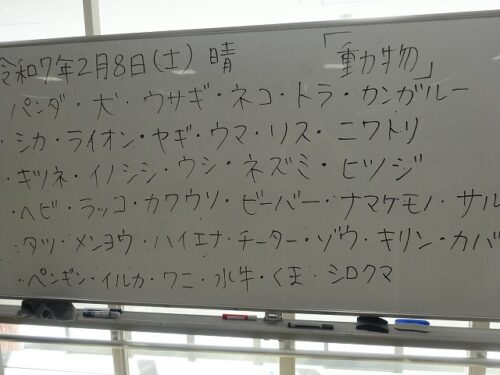 令和7年2月8日(土) 晴 「動物」
パンダ・犬・ウサギ・ネコ・トラ・カンガルー
・シカ・ライオン・ヤギ・ウマ・リス・ニワトリ
・キツネ・イノシシ・ウシ・ネズミ・ヒツジ
・ヘビ・ラッコ・カワウソ・ビーバー・ナマケモノ・サル
・タツ・メンヨウ・ハイエナ・チーター・ゾウ・キリン・カバ
・ペンギン・イルカ・ワニ・水牛・くま・シロクマ